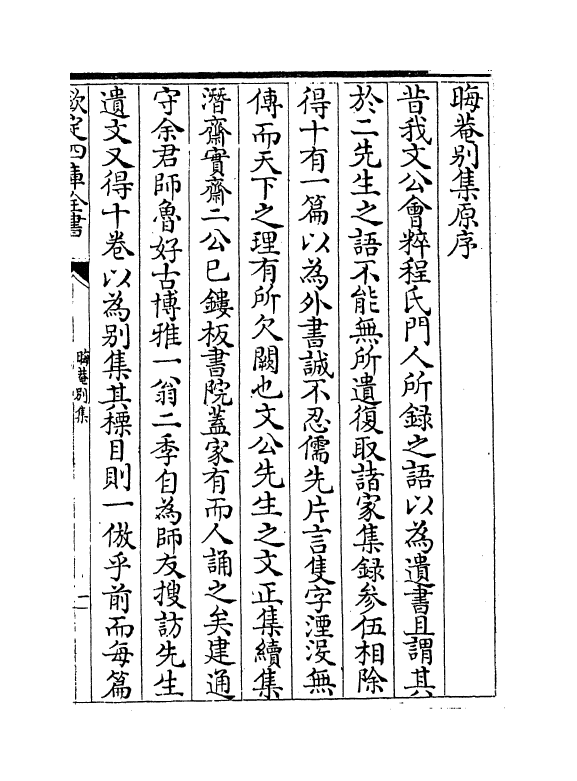 晦菴別集原序
昔我文公會粹程氏門人所録之語以為遺書且謂其
於二先生之語不能無所遺復取諸家集録參伍相除
得十有一篇以為外書誠不忍儒先片言隻字湮沒無
傳而天下之理有所欠闕也文公先生之文正集續集
潛齋實齋二公已鏤板書院蓋家有而人誦之矣建通
守余君師魯好古博雅一翁二季自為師友搜訪先生
遺文又得十卷以為別集其標目則一倣乎前而每篇
欽定四庫全書
晦菴別集
一